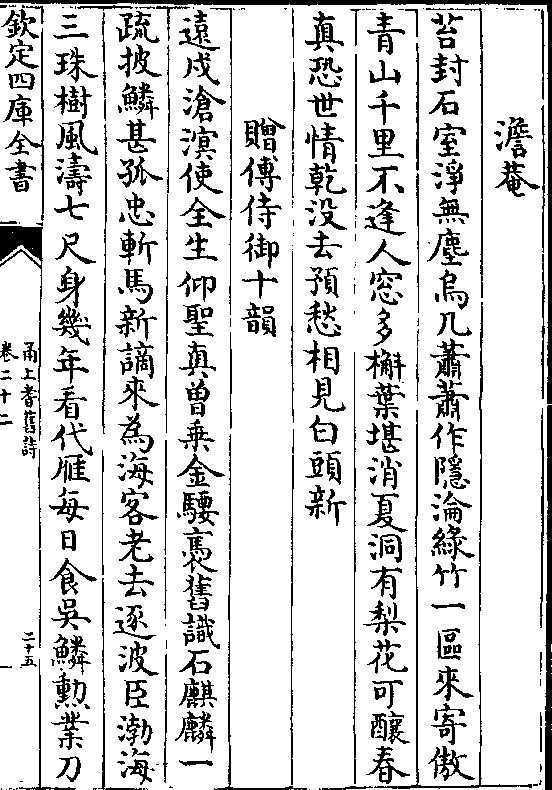 澹菴
苔封石室淨無塵烏几蕭蕭作隱淪綠竹一區來寄傲
青山千里不逢人窓多槲葉堪消夏洞有梨花可釀春
真恐世情乾没去預愁相見白頭新
贈傅侍御十韻
遠戍滄溟使全生仰聖真曽乗金騕褭舊識石麒麟一
疏披鱗甚孤忠斬馬新謫來為海客老去逐波臣渤海
三珠樹風濤七尺身幾年看代雁每日食吳鱗勲業刀
欽定四庫全書
甬上耆舊詩
卷二十二
二十五